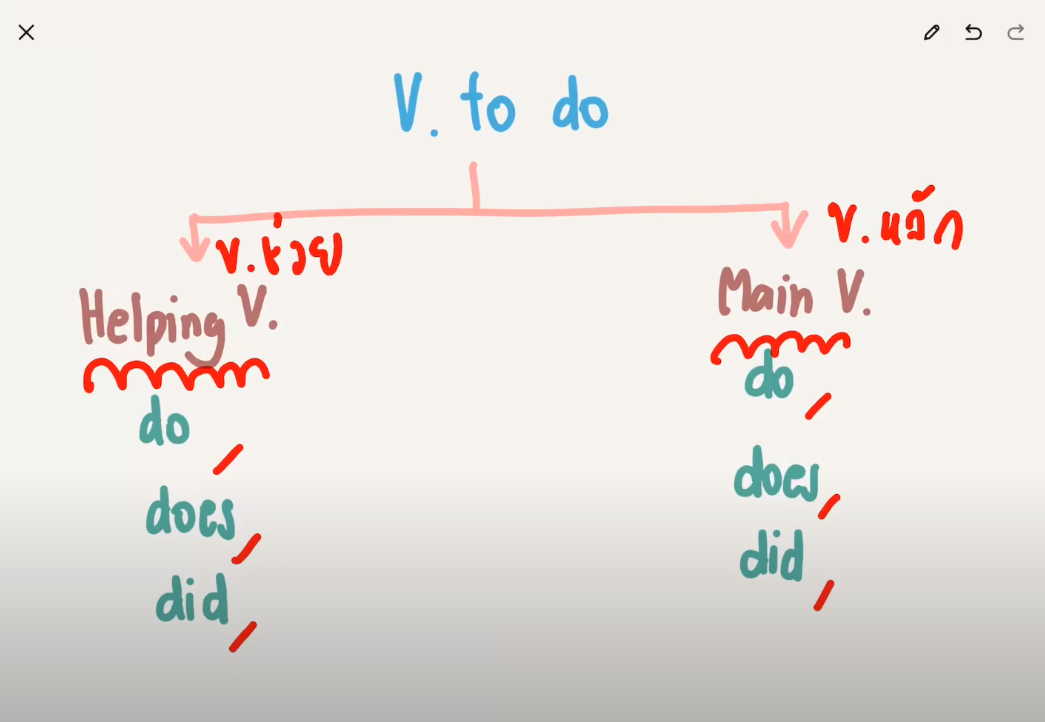 V. to do
v.ช่วย
Helping V.
do
does
did
v.หลัก
Main V.
do
does
did